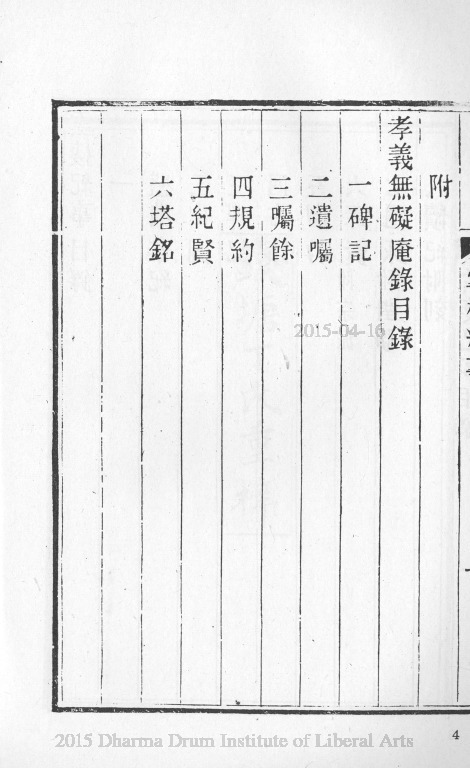 附
孝義無礙庵錄目錄
一碑記
二遺囑
三囑餘
四規約
五紀賢
六塔銘
2015-04-16
2015 Dharma Drum Institute of Liberal Arts
4